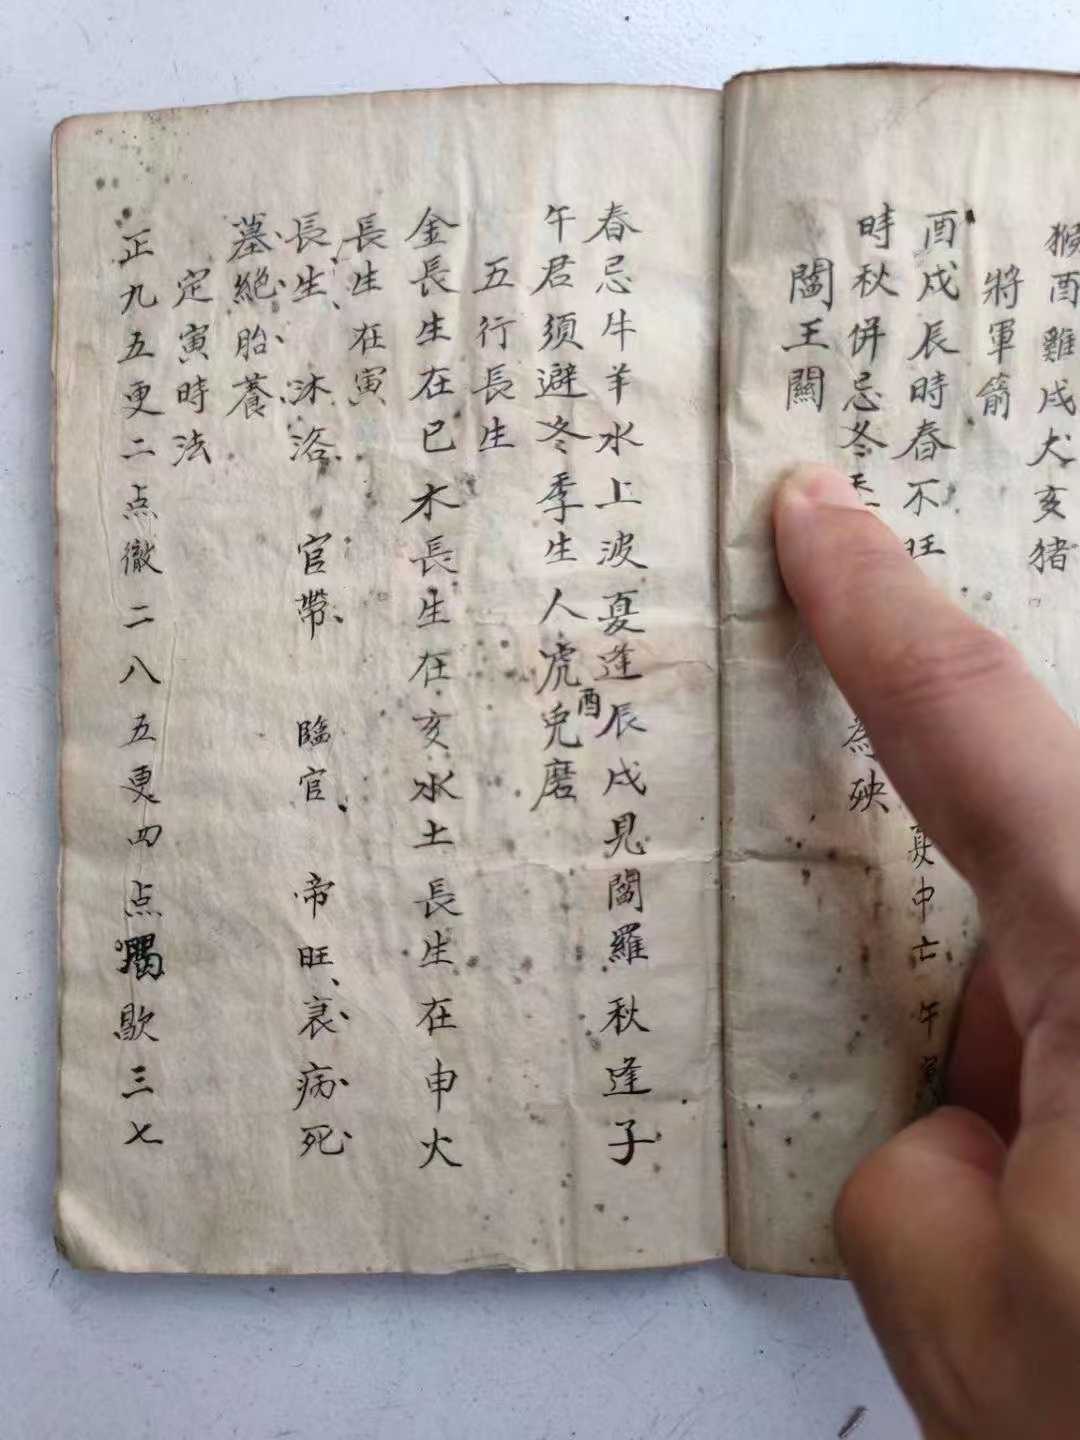 猴酉雞戌犬亥猪
將軍箭
酉戌辰時春不旺
夏中亡午寅
時秋併忌冬
為殃
閻王關
春忌牛羊水上波夏逢辰戌見閻羅秋逢子
午君須避冬季生人虎兎磨
酉
五行長生
金長生在巳木長生在亥水土長生在申火
長生在寅
長生、沐洛、官帶、臨官、帝旺、衰、病、死、
墓、絕、胎、養、
定寅時法
正九五更二点徹二八五更四点歇三七